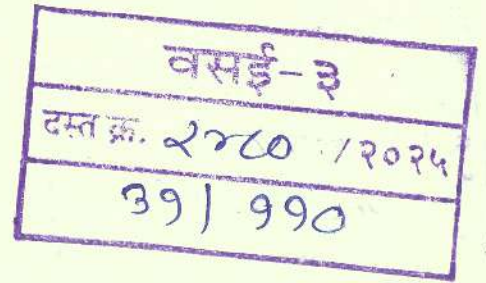 वसई-३
दस्त क्र. २४८० /२०२५
३१/ ११०